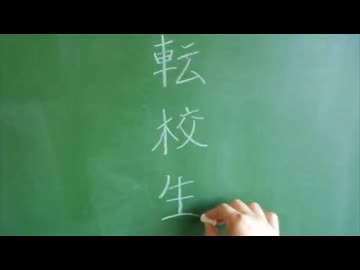 転校生